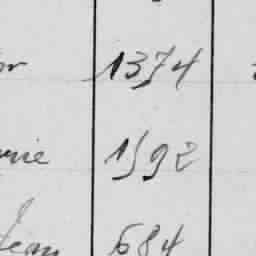 or 1374
rie 1592
Jean 684